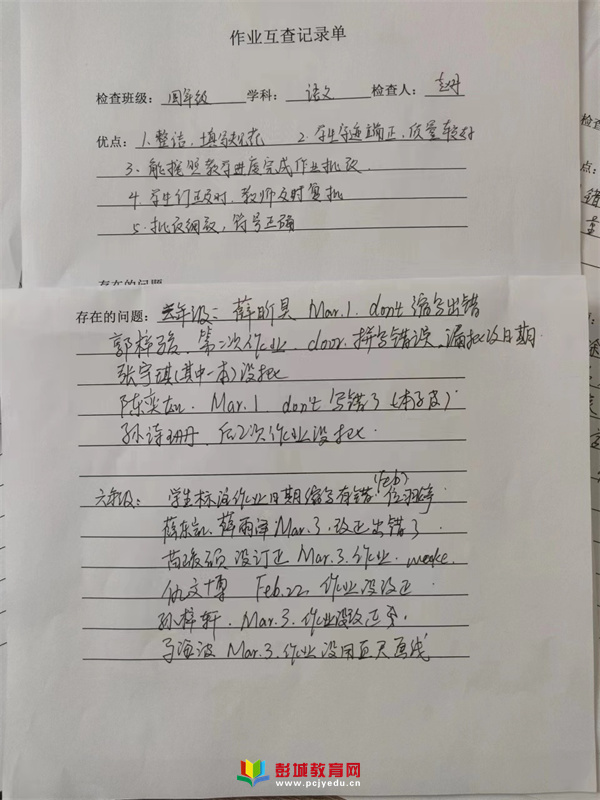 作业互查记录单
检查班级：四年级 学科：语文 检查人：赵丹
优点：1.整洁，填写规范 2.学生字迹端正，质量较好
3.能按照教学进度完成作业批改
4.学生订正及时，教师及时复批
5.批改细致，符号正确
存在的问题
存在的问题：年级：薛昕昊 Mar.1. don't 缩写出错
郭梓 第二次作业. door. 拼写错误. 漏批改日期.
张宇琪(其中一本)没批
陈奕 . Mar.1. don't 写错了(本子皮)
孙诗珊，后2次作业没批.
六年级：学生标注作业日期缩写有错(Feb)
薛雨泽 Mar.3.改正出错了
苗 没订正 Mar.3.作业. weeke.
仇文博 Feb.22 作业没改正.
孙梓轩. Mar.3.作业没改正
Mar.3.作业没用直尺画线
彭城教育网
www.pcjyedu.cn